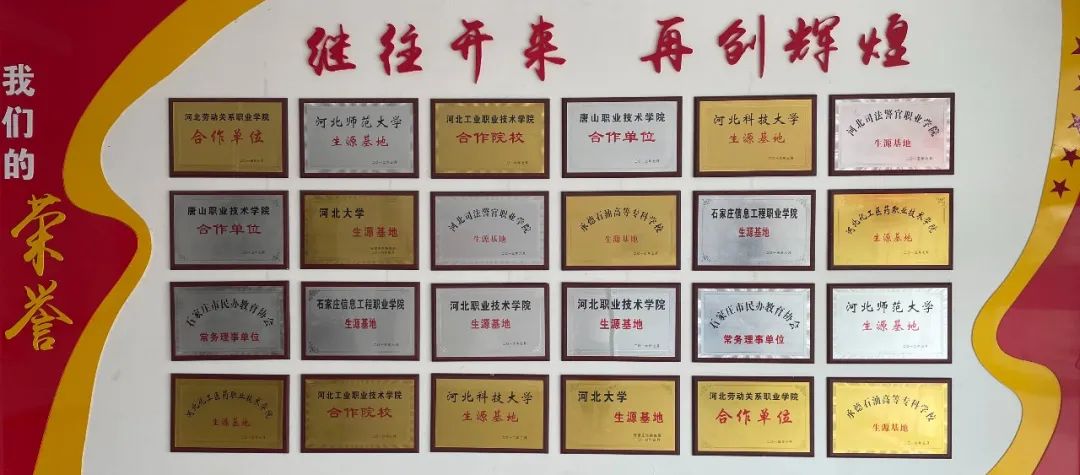 继往开来 再创辉煌
我们的
荣誉
河北劳动关系职业学院
合作单位
河北师范大学
生源基地
河北工业职业技术学院
合作院校
唐山职业技术学院
合作单位
河北科技大学
生源基地
河北司法警官职业学院
生源基地
唐山职业技术学院
合作单位
河北大学
生源基地
河北司法警官职业学院
生源基地
承德石油高等专科学校
生源基地
石家庄信息工程职业学院
生源基地
河北化工医药职业技术学院
生源基地
石家庄市民办教育协会
常务理事单位
石家庄信息工程职业学院
生源基地
河北职业技术学院
生源基地
河北职业技术学院
生源基地
石家庄市民办教育协会
常务理事单位
河北师范大学
生源基地
河北化工医药职业技术学院
生源基地
河北工业职业技术学院
合作院校
河北科技大学
生源基地
河北大学
生源基地
河北劳动关系职业学院
合作单位
承德石油高等专科学校
生源基地